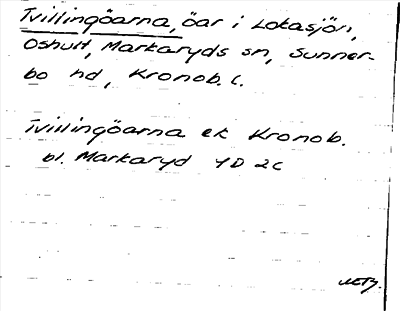 Tvillingöarna, öar i Lokasjön,
Oshult, Markaryds sn, Sunner-
bo hd, Kronob. l.
Tvillingöarna ek Kronob.
bl. Markaryd 4D 2c